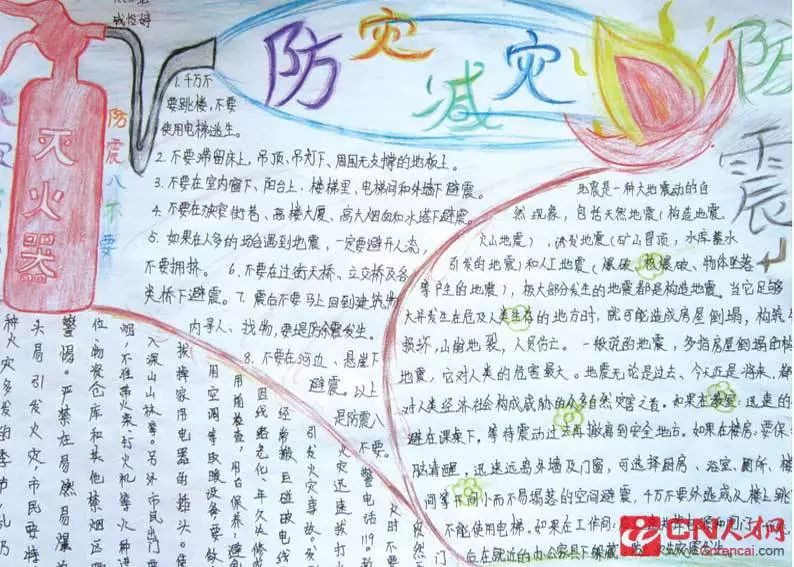 防灾
减灾
防
震
灭火器
防震八不要
1.千万不
要跳楼,不要
使用电梯逃生。
2.不要滞留床上,吊顶、吊灯下、周围无支撑的地板上。
3.不要在室内窗下、阳台上、楼梯里、电梯间和外墙下避震。
4.不要在狭窄街巷、高楼大厦、高大烟囱和水塔下避震。
5.如果在人多的场合遇到地震,一定要避开人流,
不要拥挤。 6.不要在过街天桥、立交桥及各
类桥下避震。7.震后不要马上回到建筑物
内寻人、找物,要提防余震发生。
8.不要在河边、悬崖下
避震。以上
是防震八
不要。
地震是一种大地震动的自
然现象,包括天然地震(构造地震、
火山地震),诱发地震(矿山冒顶,水库蓄水
引发的地震)和人工地震(爆破、核爆破、物体坠落
等产生的地震),极大部分发生的地震都是构造地震。当它足够
大并发生在危及人类生存的地方时,就可能造成房屋倒塌,构筑
损坏,山崩地裂,人员伤亡。一般说的地震,多指房屋倒塌的
地震,它对人类的危害最大。地震无论是过去、今天还是将来,都
对人类经济社会构成威胁的众多自然灾害之首。如果在教室:迅速
避在课桌下,等待震动过去再撤离到安全地方。如果在楼房:要保
脑清醒,迅速远离外墙及门窗,可选择厨房、浴室、厕所、楼
间等下间小而不易塌落的空间避震,千万不要外逃或从楼上跳
不能使用电梯。如果在工作间:
门、
台在就近的办公家具下躲藏
火时不要
警电话119。
火灾迅速拨打
引发火灾导致。
经常搬压磁破电线
因线路老化、年久失修
用用检查,用自保养,避
用空调等取暖设备要
拔掉家用电器的插头。
入深山山林等。另外市民出门要
烟,不准带火柴打火机等火种进
位、物资仓库和其他禁烟区
警惕。严禁在易燃易爆
头易引发火灾,市民要
种火灾多发的季节
CN人才网
cnrencai.com